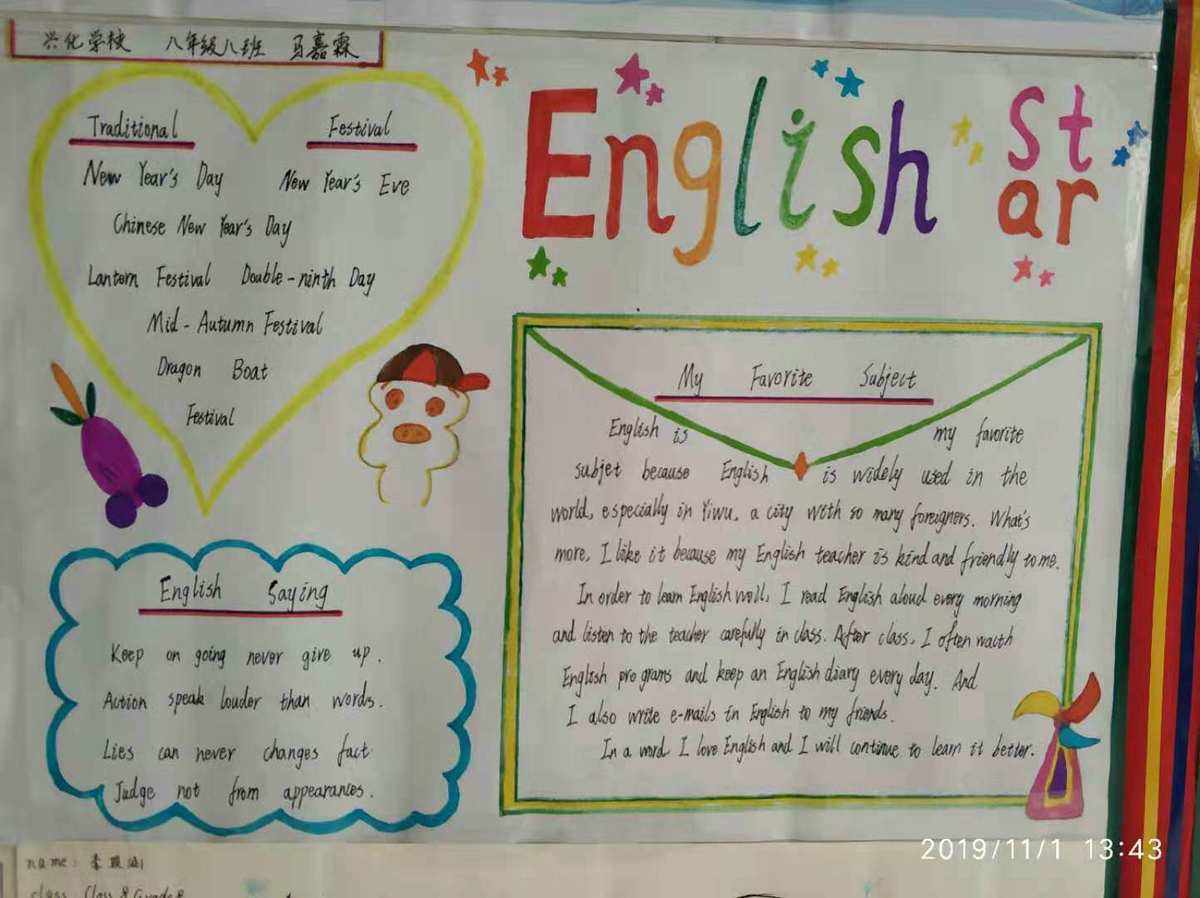 兴化学校 八年级八班 马嘉霖
English
St
ar
Traditional Festival
New Year's Day New Year's Eve
Chinese New Year's Day
Lantern Festival Double-ninth Day
Mid-Autumn Festival
Dragon Boat
Festival
My Favorite Subject
English is my favorite
subjet because English is widely used in the
world, especially in Yiwu, a city wtth so many foreigners. What's
more, I like it because my English teacher is kind and friendly to me.
In order to learn English well, I read English aloud every morning
and listen to the teacher carefully in class. After class, I often wacth
English programs and keep an English diary every day. And
I also write e-mails in English to my friends.
In a word I love English and I will continue to learn it better.
English Saying
Keep on going never give up.
Action speak louder than words.
Lies can never changes fact
Judge not from appearances.
2019/11/1 13:43
name: 李
class: Class 8 Grade 8